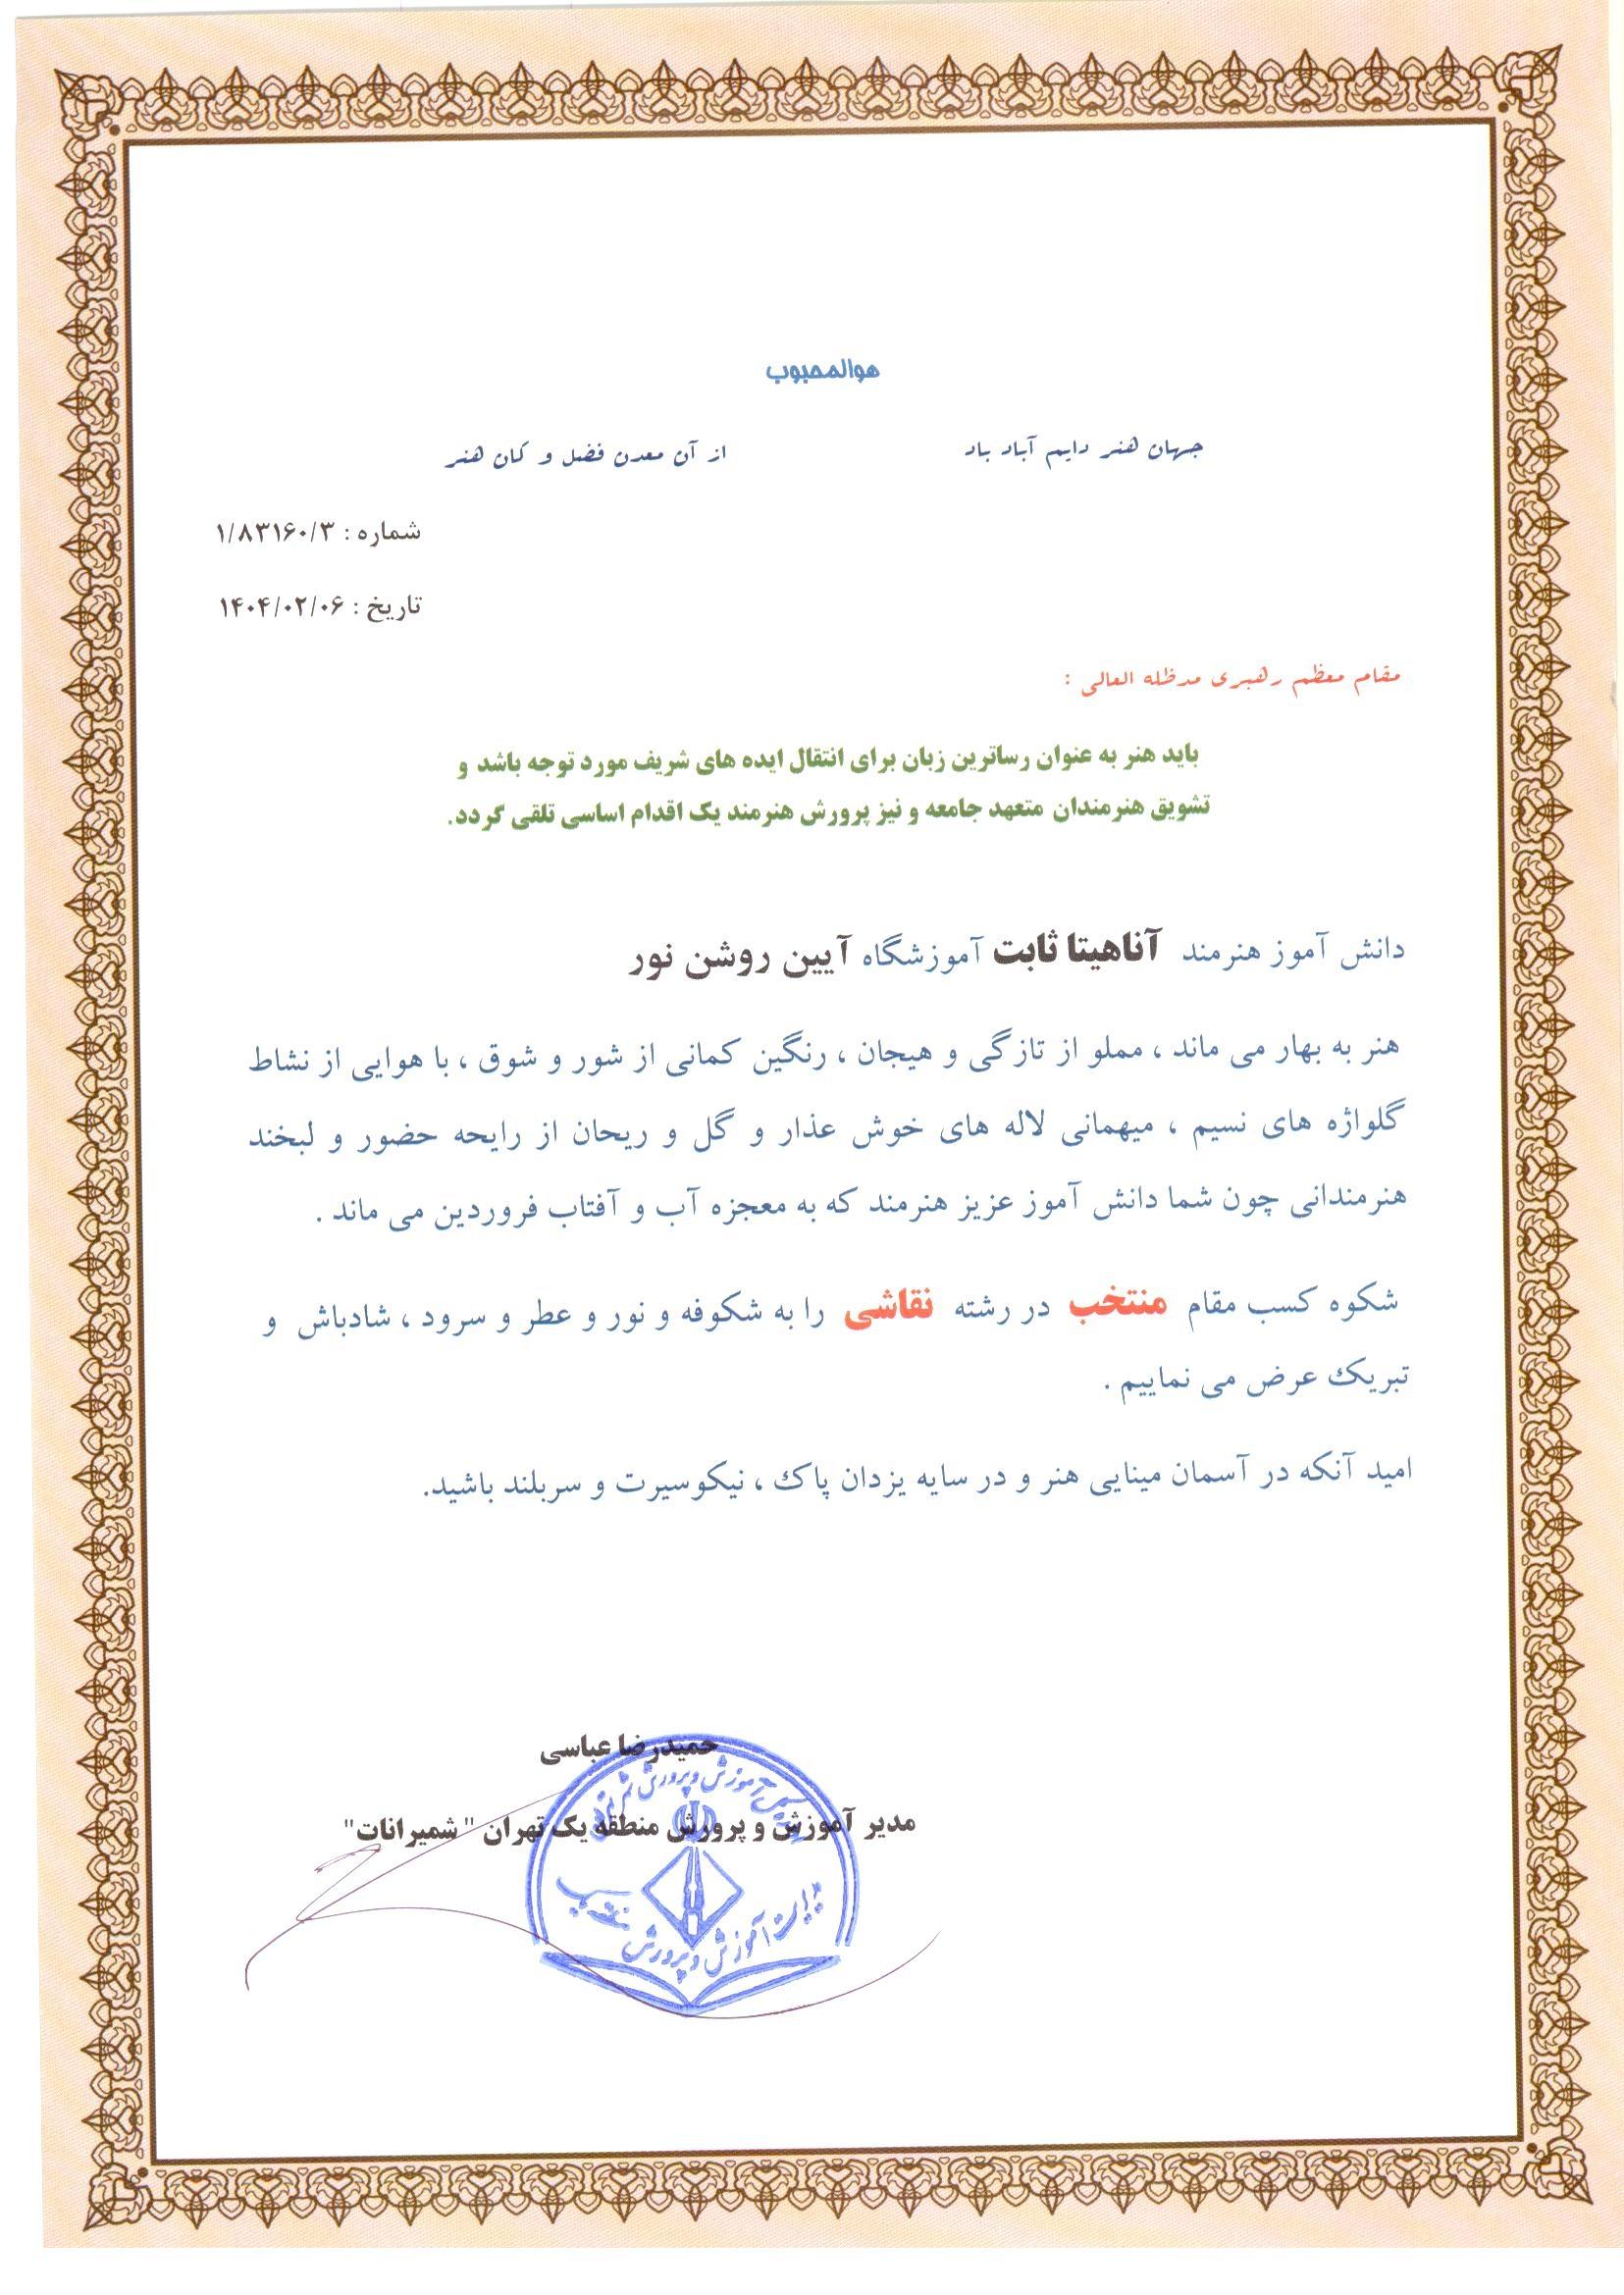 هوالمحبوب
جهان هنر دایم آباد باد از آن معدن فضل و کان هنر
شماره : ۱/۸۳۱۶۰/۳
تاریخ : ۱۴۰۴/۰۲/۰۶
مقام معظم رهبری مدظله العالی :
باید هنر به عنوان رساترین زبان برای انتقال ایده های شریف مورد توجه باشد و
تشویق هنرمندان متعهد جامعه و نیز پرورش هنرمند یک اقدام اساسی تلقی گردد.
دانش آموز هنرمند آناهیتا ثابت آموزشگاه آیین روشن نور
هنر به بهار می ماند ، مملو از تازگی و هیجان ، رنگین کمانی از شور و شوق ، با هوایی از نشاط
گلواژه های نسیم ، میهمانی لاله های خوش عذار و گل و ریحان از رایحه حضور و لبخند
هنرمندانی چون شما دانش آموز عزیز هنرمند که به معجزه آب و آفتاب فروردین می ماند .
شکوه کسب مقام منتخب در رشته نقاشی را به شکوفه و نور و عطر و سرود ، شادباش و
تبریک عرض می نماییم .
امید آنکه در آسمان مینایی هنر و در سایه یزدان پاک ، نیکوسیرت و سربلند باشید.
حمیدرضا عباسی
مدیر آموزش و پرورش منطقه یک تهران " شمیرانات"
آموزش و پرورش
آموزش و پرورش